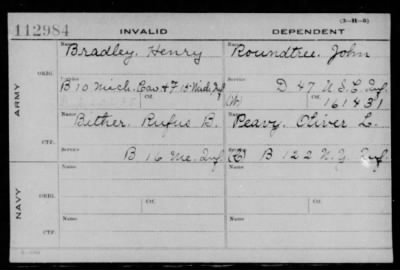 (3-11-5)
112984 INVALID DEPENDENT
Name Name
Bradley, Henry Roundtree, John
ARMY
ORIG.
Service Service
B 10 Mich. Cav & F 15 Mich. Inf D 47 U.S.C. Inf.
Ctf. (W) Ctf. 161431
Name Name
Bither, Rufus B. Peavy, Oliver L.
CTF.
Service Service
B 16 Me. Inf B 122 N.Y. Inf
NAVY
ORIG.
Name Name
Ctf. Ctf.
CTF.
Name Name